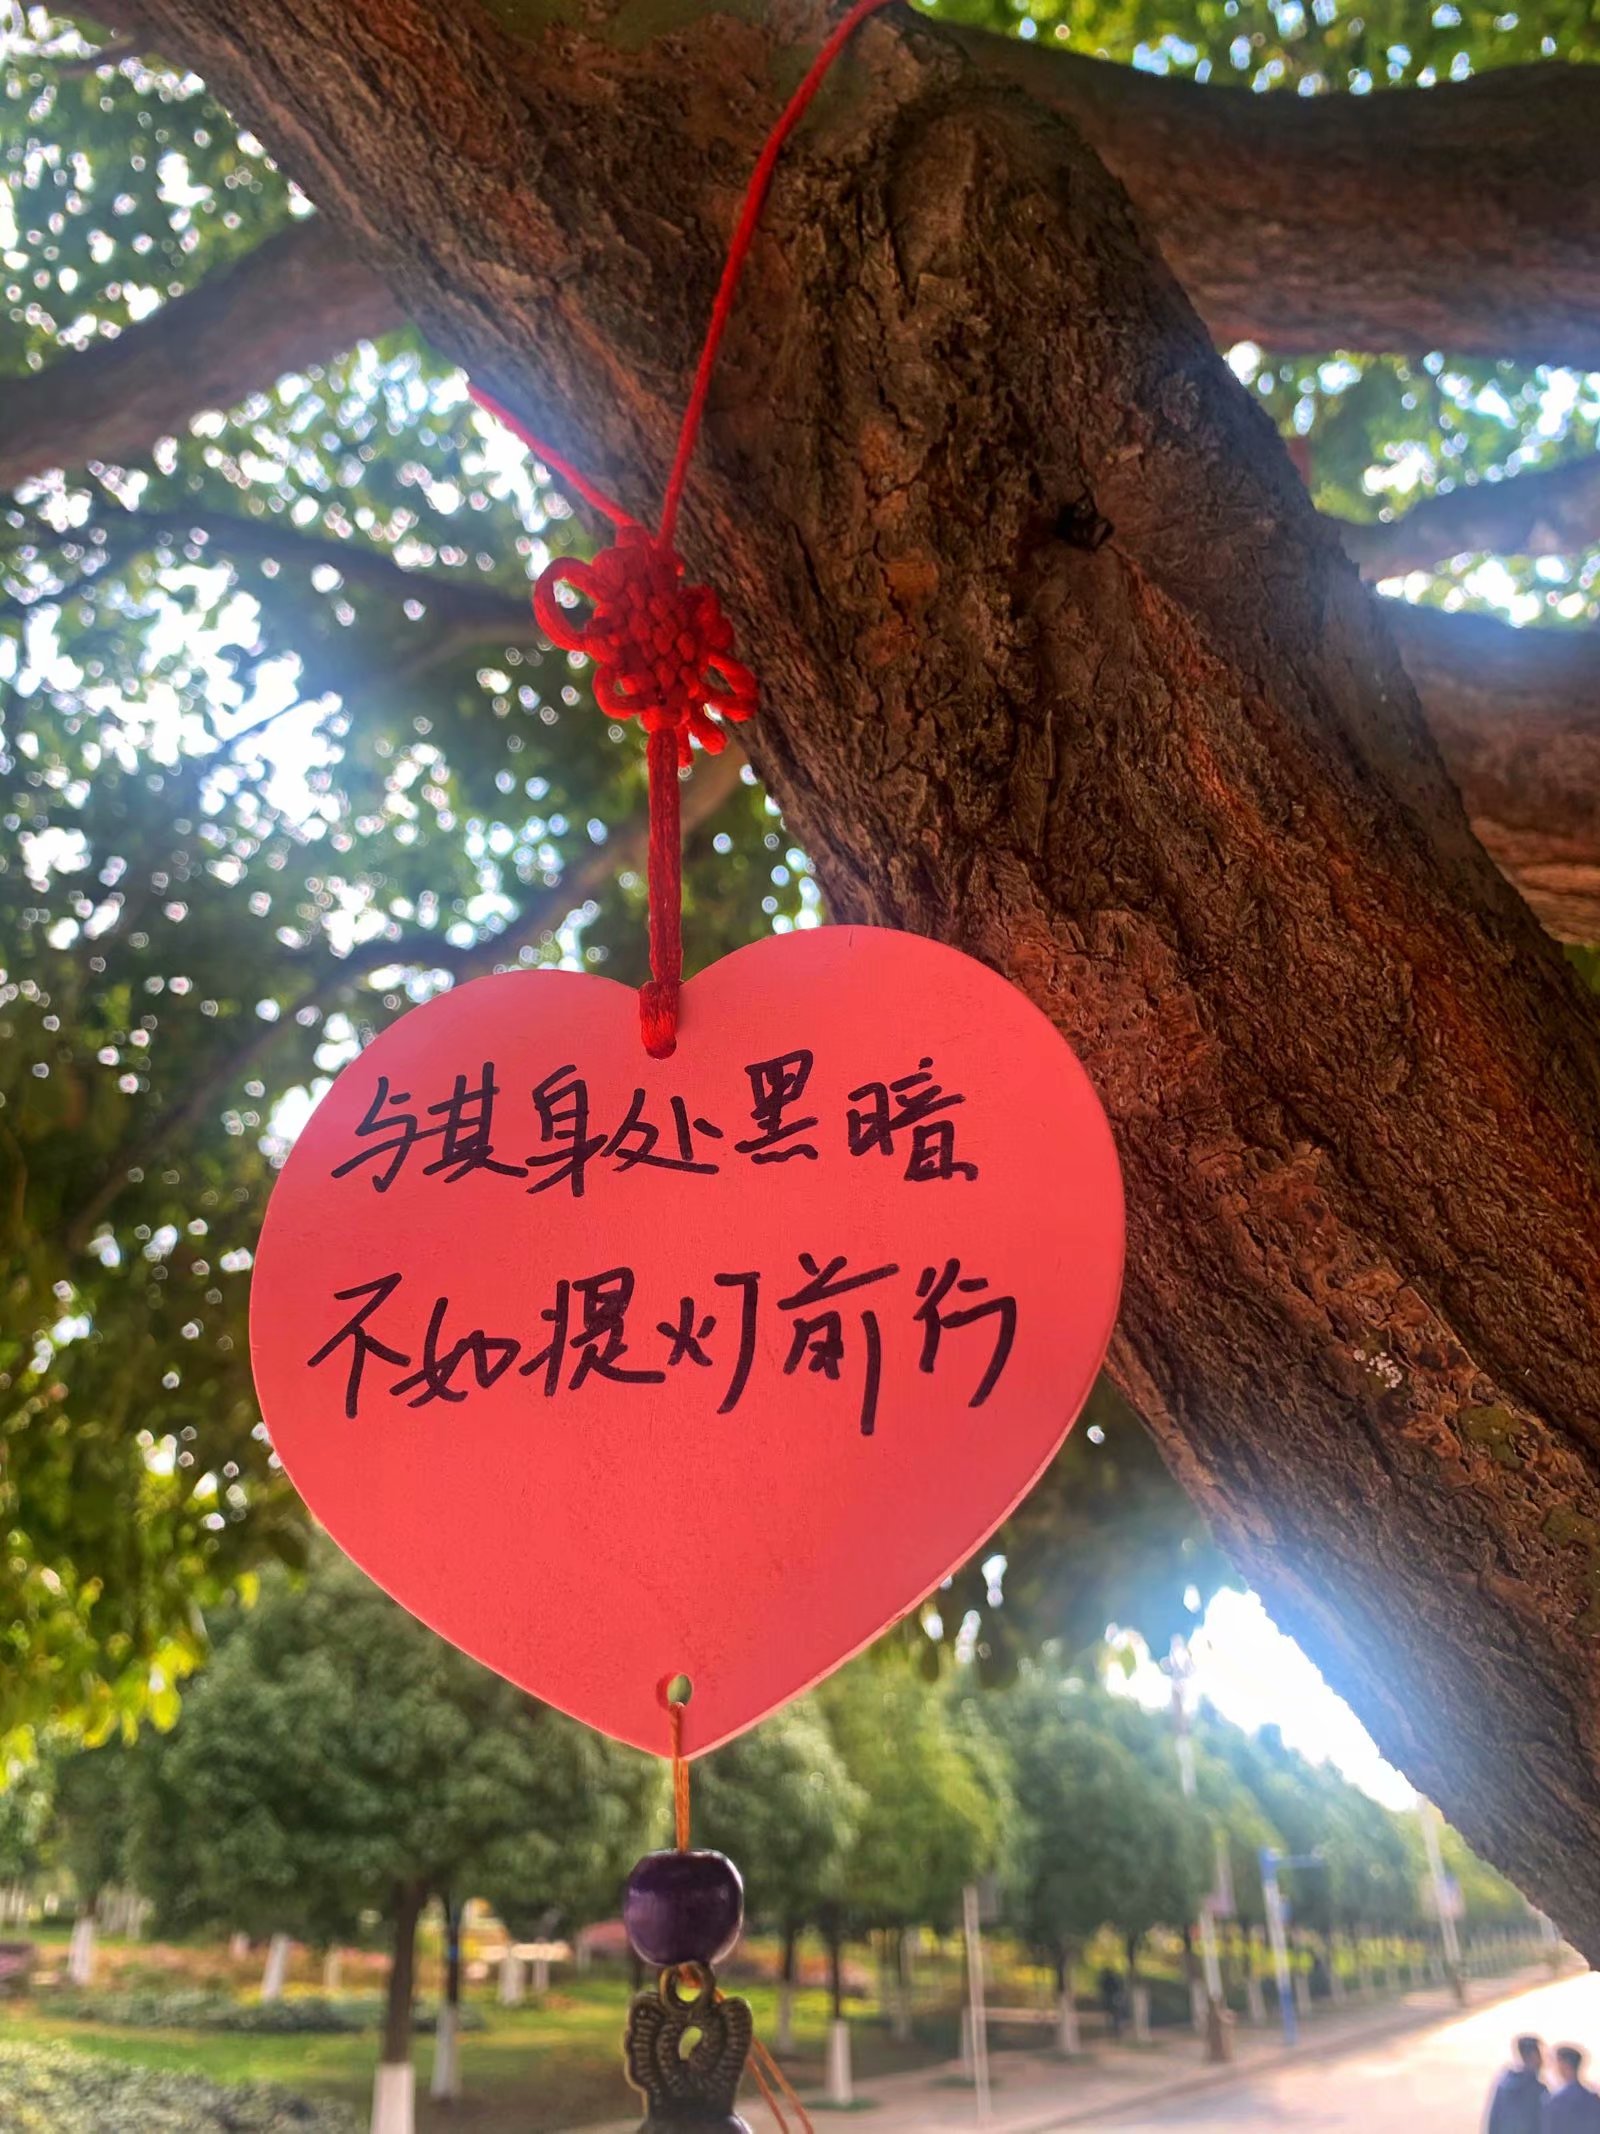 与其身处黑暗
不如提灯前行